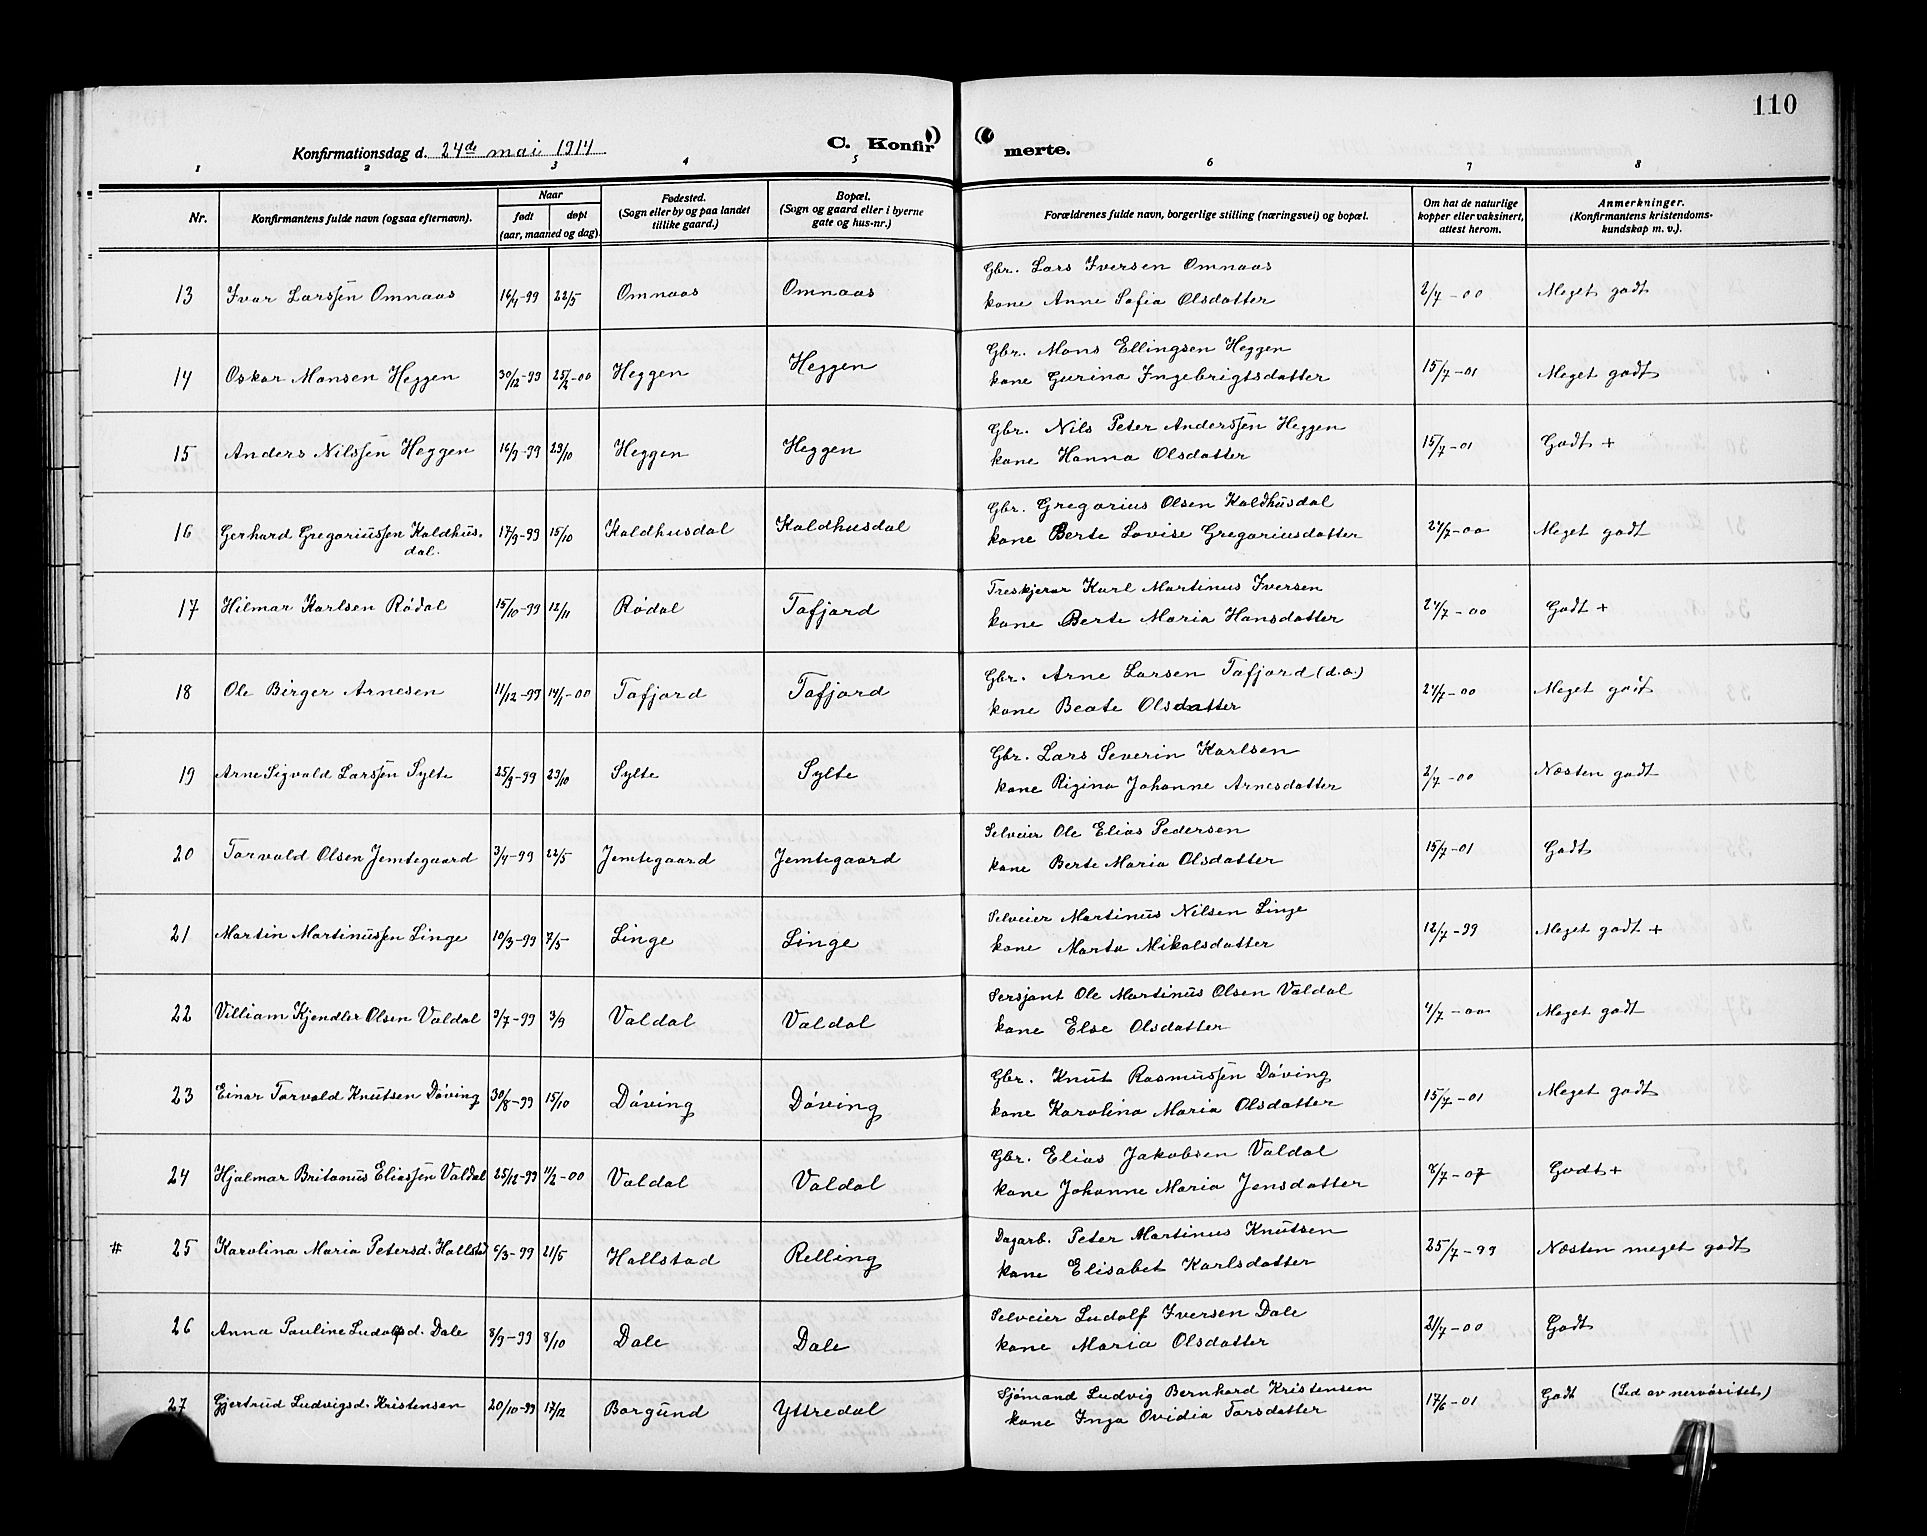 110
Konfirmationsdag d. 24de mai 1914 C. Konfirmerte.
1 2 3 4 5 6 7 8
Nr. Konfirmantens fulde navn (ogsaa efternavn). Naar født døpt (aar, maaned og dag). Fødested. (Sogn eller by og paa landet tillike gaard.) Bopæl. (Sogn og gaard eller i byerne gate og hus-nr.) Forældrenes fulde navn, borgerlige stilling (næringsvei) og bopæl. Om hat de naturlige kopper eller vaksinert, attest herom. Anmerkninger. (Konfirmantens kristendomskundskap m. v.).
13 Ivar Larssen Omnaas 16/4-99 22/5 Omnaas Omnaas Gbr. Lars Iversen Omnaas
kone Anne Sofia Olsdatter 2/7-00 Meget godt
14 Oskar Monsen Heggen 30/12-99 25/2-00 Heggen Heggen Gbr. Mons Ellingsen Heggen
kone Gurina Ingebrigtsdatter 15/7-01 Meget godt
15 Anders Nilssen Heggen 16/9-99 29/10 Heggen Heggen Gbr. Nils Peter Anderssen Heggen
kone Hanna Olsdatter 15/7-01 Godt +
16 Gerhard Gregoriussen Kaldhusdal. 17/9-99 15/10 Kaldhusdal Kaldhusdal Gbr. Gregorius Olsen Kaldhusdal
kone Berte Lovise Gregoriusdatter 24/7-00 Meget godt
17 Hilmar Karlsen Rødal 15/10-99 12/11 Rødal Tafjord Treskjærer Karl Martinus Iversen
kone Berte Maria Hansdatter 24/7-00 Godt +
18 Ole Birger Arnesen 11/12-99 14/1-00 Tafjord Tafjord Gbr. Arne Larsen Tafjord (d.o.)
kone Beate Olsdatter 24/7-00 Meget godt
19 Arne Sigvald Larssen Sylte 25/9-99 29/10 Sylte Sylte Gbr. Lars Severin Karlsen
kone Rigina Johanne Arnesdatter 2/7-00 Næsten godt
20 Torvald Olsen Jemtegaard 3/4-99 22/5 Jemtegaard Jemtegaard Selveier Ole Elias Pedersen
kone Berte Maria Olsdatter 15/7-01 Godt
21 Martin Martinussen Linge 10/3-99 7/5 Linge Linge Selveier Martinus Nilsen Linge
kone Marta Mikalsdatter 12/7-99 Meget godt +
22 Villiam Kjendler Olsen Valdal 9/7-99 3/9 Valdal Valdal Sersjant Ole Martinus Olsen Valdal
kone Else Olsdatter 4/7-00 Meget godt
23 Einar Torvald Knutsen Døving 30/8-99 15/10 Døving Døving Gbr. Knut Rasmussen Døving
kone Karolina Maria Olsdatter 15/7-01 Meget godt
24 Hjalmar Britanus Eliassen Valdal 25/12-99 11/2-00 Valdal Valdal Gbr. Elias Jakobsen Valdal
kone Johanne Maria Jensdatter 2/7-07 Godt +
# 25 Karolina Maria Petersd. Hallstad 6/3-99 21/5 Hallstad Relling Dagarb. Peter Martinus Knutsen
kone Elisabet Karlsdatter 25/7-99 Næsten meget godt
26 Anna Pauline Ludolfsd. Dale 8/9-99 8/10 Dale Dale Selveier Ludolf Iversen Dale
kone Maria Olsdatter 21/7-00 Godt
27 Gjertrud Ludvigsd. Kristensen 20/10-99 17/12 Borgund Yttredal Sjømand Ludvig Bernhard Kristensen
kone Inga Ovidia Torsdatter 17/6-01 Godt (Led av nervøsitet)